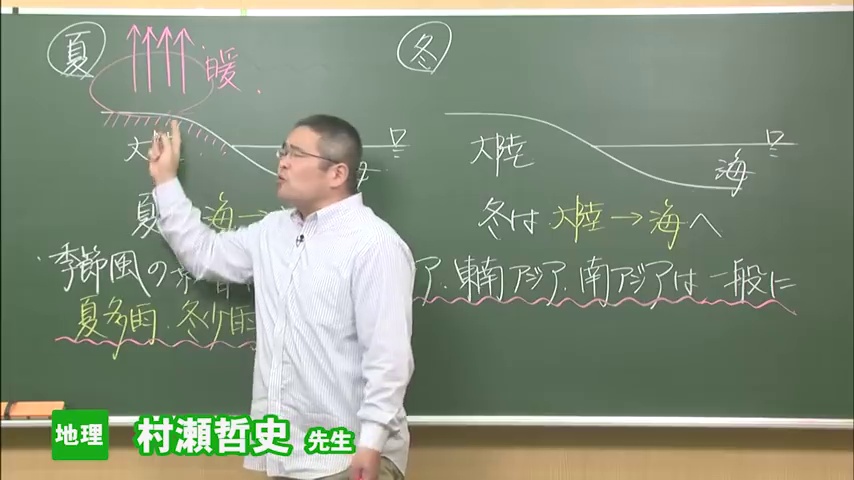 夏
暖
冬
大
大陸
海
夏
海→
冬は 大陸→海へ
季節風の
ア.東南アジア.南アジアは一般に
夏多雨.冬少雨
地理 村瀬哲史 先生